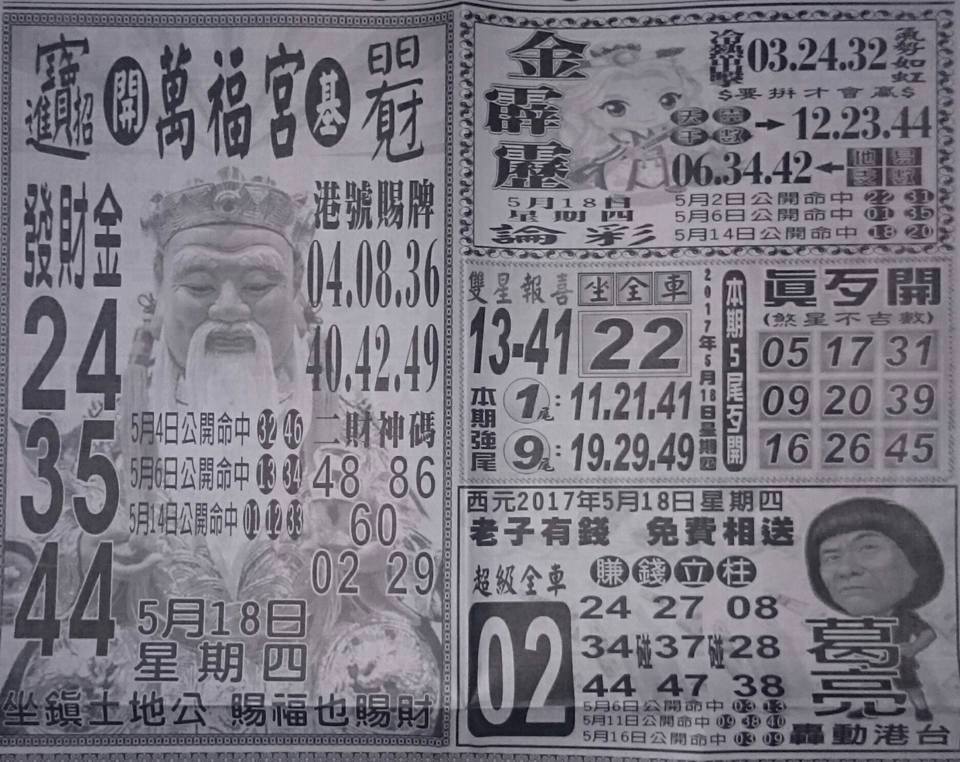 招財進寶
開 萬福宮 基
發財金
24
35
44
港號賜牌
04.08.36
40.42.49
二財神碼
48 86
60
02 29
5月4日公開命中 32 46
5月6日公開命中 13 34
5月14日公開命中 01 12 33
5月18日
星期四
坐鎮土地公 賜福也賜財
金霹靂
5月18日
星期四
論彩
03.24.32
氣勢如虹
$要拚才會贏$
12.23.44
06.34.42
5月2日公開命中 22 31
5月6日公開命中 01 35
5月14日公開命中 18 20
雙星報喜
13-41
坐全車
22
本期強尾
1尾: 11.21.41
9尾: 19.29.49
2017年5月18日星期四
本期5尾歹開
真歹開
(煞星不吉數)
05 17 31
09 20 39
16 26 45
西元2017年5月18日星期四
老子有錢 免費相送
超級全車
02
賺錢立柱
24 27 08
34碰37碰28
44 47 38
5月6日公開命中 03 13
5月11日公開命中 09 38 40
5月16日公開命中 03 09
葛亮
轟動港台